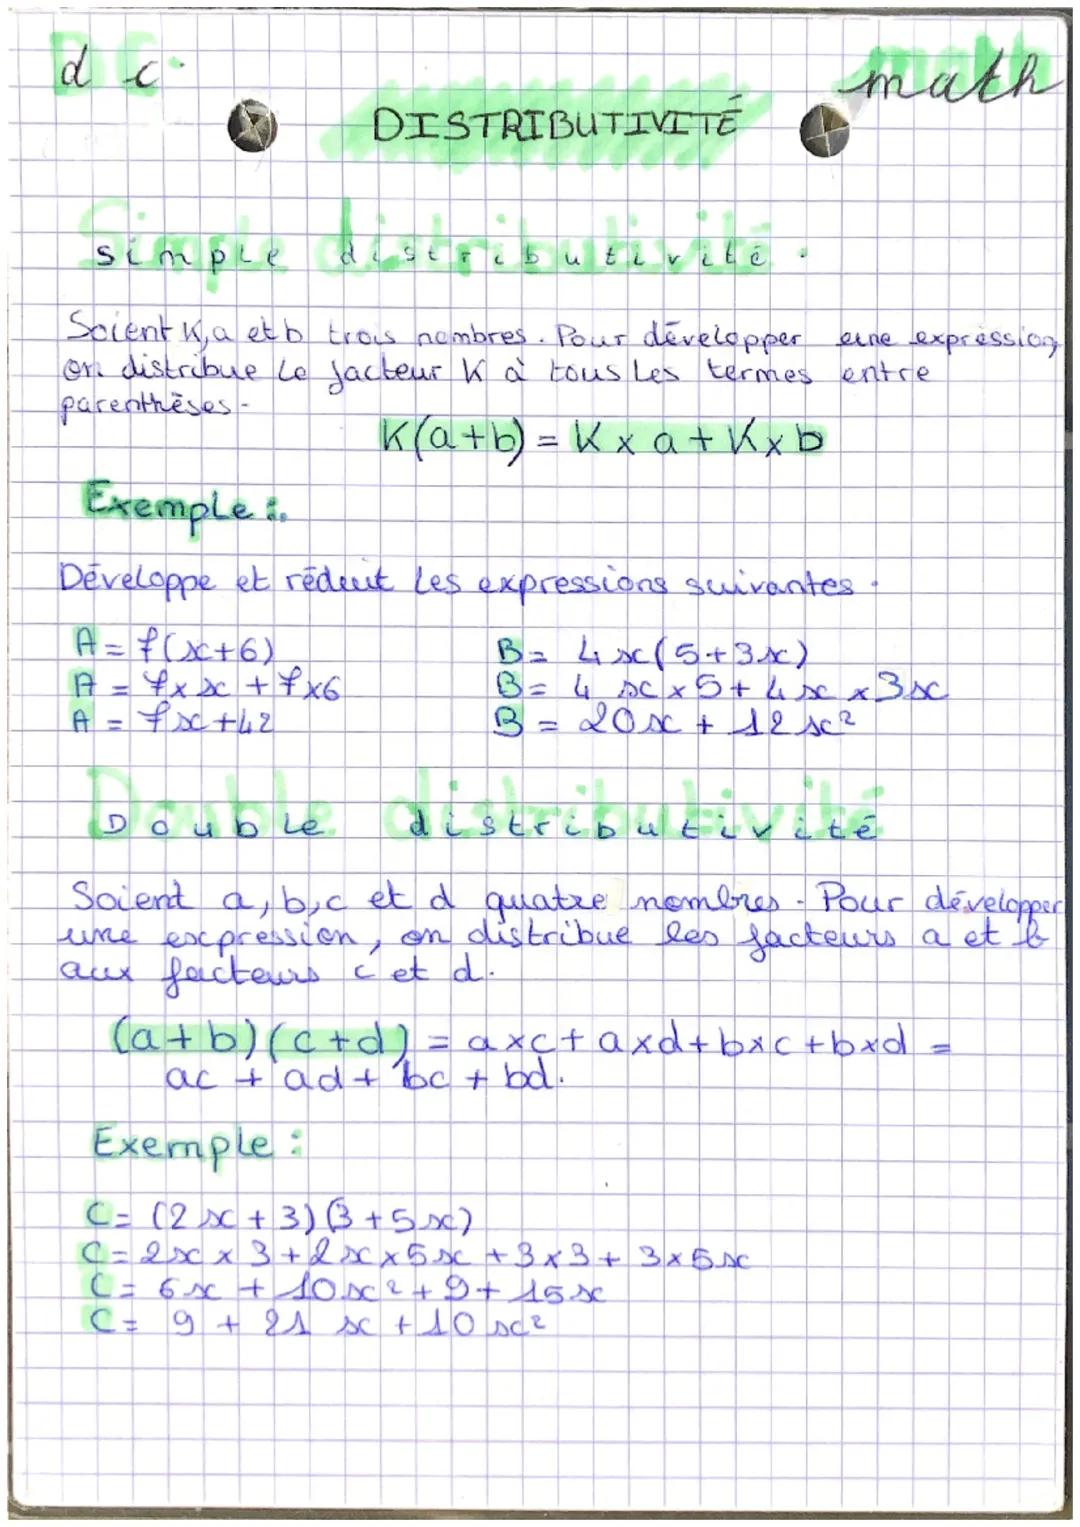 d c.
math
DISTRIBUTIVITÉ
Simple distributivité.
Soient K, a et b trois nombres. Pour développer une expression,
on distribue le facteur K à tous les termes entre
parenthèses.
K(a+b) = K x a + K x b
Exemple :
Développe et réduit les expressions suivantes.
A = 7(x+6)
A = 7 x x + 7 x 6
A = 7x + 42
B = 4x(5+3x)
B = 4x x 5 + 4x x 3x
B = 20x + 12x²
Double distributivité
Soient a, b, c et d quatre nombres. Pour développer
une expression, on distribue les facteurs a et b
aux facteurs c et d.
(a+b)(c+d) = axc + axd + bxc + bxd =
ac + ad + bc + bd.
Exemple :
C = (2x + 3)(3 + 5x)
C = 2x x 3 + 2x x 5x + 3 x 3 + 3 x 5x
C = 6x + 10x² + 9 + 15x
C = 9 + 21x + 10x²